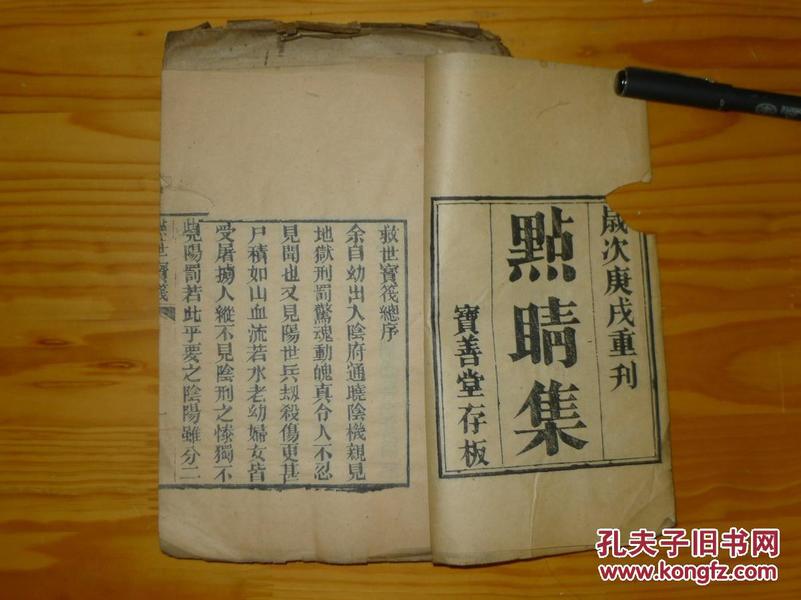 歲次庚戌重刊
點睛集
寶善堂存板
救世寶筏總序
余自幼出入陰府通曉陰機親見
地獄刑罰驚魂動魄真令人不忍
見聞也又見陽世兵刼殺傷更甚
尸積如山血流若水老幼婦女皆
受屠擄人縱不見陰刑之慘獨不
見陽罰若此乎要之陰陽雖分二
救世寶筏
一
孔夫子旧书网
www.kongfz.com